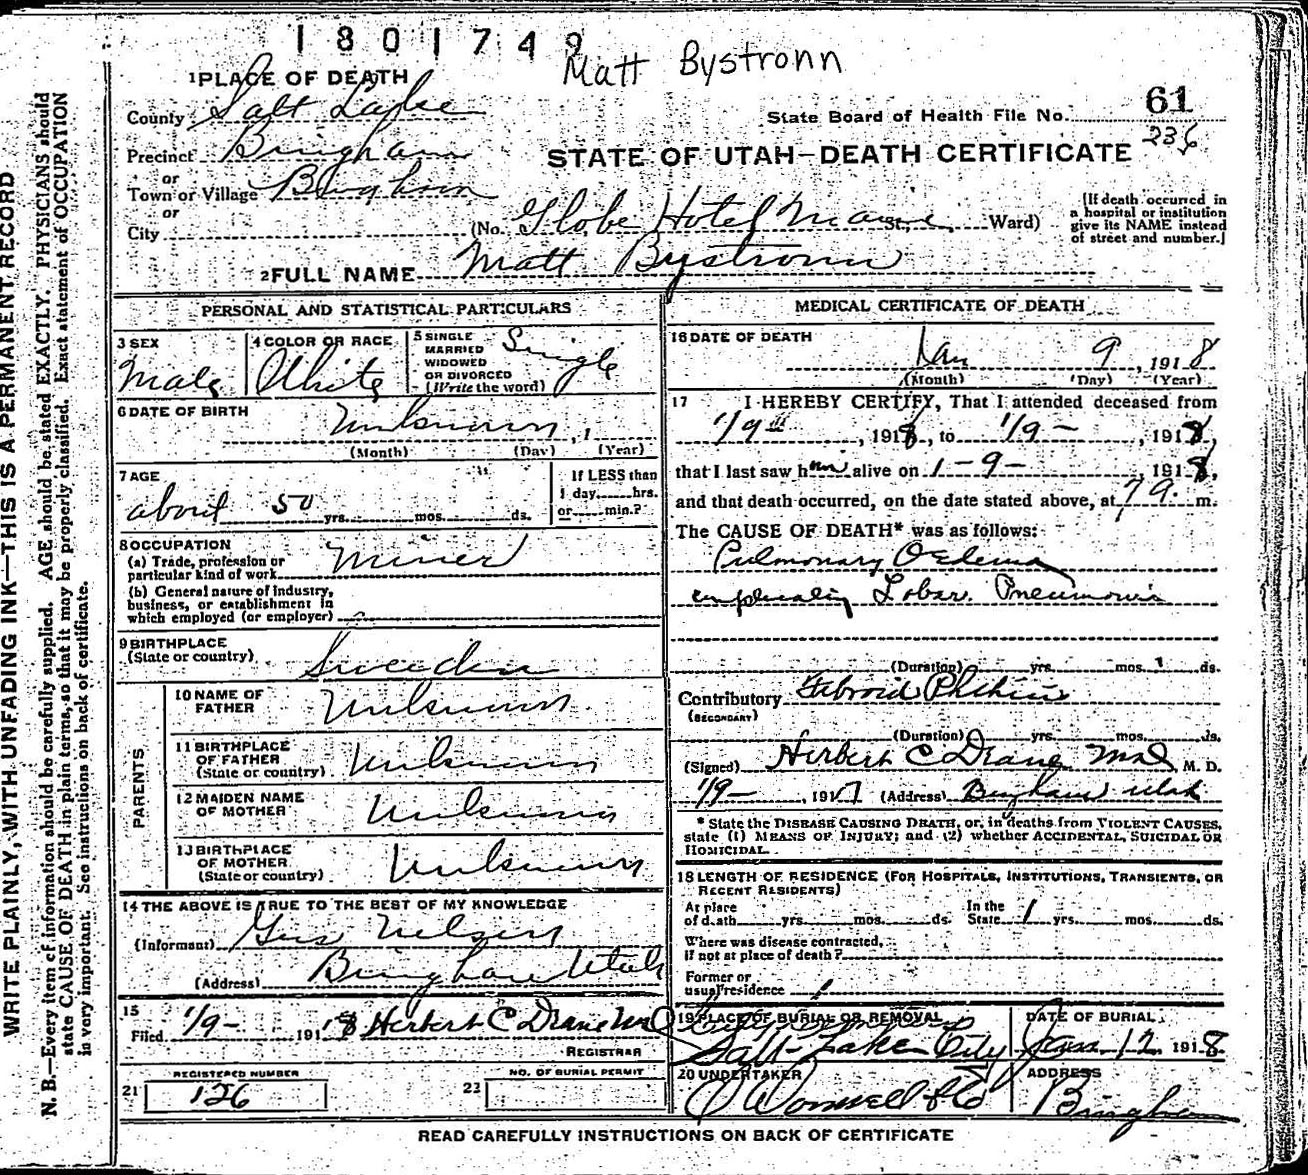 1801749
Matt Bystronn
1 PLACE OF DEATH
County Salt Lake
State Board of Health File No. 61
236
Precinct Bingham
STATE OF UTAH—DEATH CERTIFICATE
or
Town or Village Bingham
or
City (No. Globe Hotel Main St., Ward)
(If death occurred in a hospital or institution give its NAME instead of street and number.)
2 FULL NAME Matt Bystronn
PERSONAL AND STATISTICAL PARTICULARS
3 SEX
Male
4 COLOR OR RACE
White
5 SINGLE
MARRIED
WIDOWED
OR DIVORCED
(Write the word)
Single
6 DATE OF BIRTH
Unknown, 1
(Month) (Day) (Year)
7 AGE
about 50 yrs. mos. ds.
If LESS than
1 day hrs.
or min.?
8 OCCUPATION
(a) Trade, profession or
particular kind of work Miner
(b) General nature of Industry,
business, or establishment in
which employed (or employer)
9 BIRTHPLACE
(State or country) Sweeden
PARENTS
10 NAME OF
FATHER Unknown
11 BIRTHPLACE
OF FATHER
(State or country) Unknown
12 MAIDEN NAME
OF MOTHER Unknown
13 BIRTHPLACE
OF MOTHER
(State or country) Unknown
14 THE ABOVE IS TRUE TO THE BEST OF MY KNOWLEDGE
(Informant) Gus Nelson
(Address) Bingham Utah
15
Filed 1/9- 1918 Herbert C Drane MD
REGISTRAR
REGISTERED NUMBER
21 126
NO. OF BURIAL PERMIT
22
MEDICAL CERTIFICATE OF DEATH
16 DATE OF DEATH
Jan 9, 1918
(Month) (Day) (Year)
17 I HEREBY CERTIFY, That I attended deceased from
1/9th, 1918, to 1/9-, 1918,
that I last saw him alive on 1-9-, 1918,
and that death occurred, on the date stated above, at 7 a. m.
The CAUSE OF DEATH* was as follows:
Pulmonary Oedema
complicating Lobar Pneumonia
(Duration) yrs. mos. ds.
Contributory Fibroid Phthisis
(SECONDARY)
(Duration) yrs. mos. ds.
(Signed) Herbert C Drane MD, M. D.
1/9-, 1917 (Address) Bingham Utah
* State the DISEASE CAUSING DEATH, or, in deaths from VIOLENT CAUSES,
state (1) MEANS OF INJURY; and (2) whether ACCIDENTAL, SUICIDAL OR
HOMICIDAL.
18 LENGTH OF RESIDENCE (FOR HOSPITALS, INSTITUTIONS, TRANSIENTS, OR
RECENT RESIDENTS)
At place
of death yrs. mos. ds.
In the
State 1 yrs. mos. ds.
Where was disease contracted,
if not at place of death?
Former or
usual residence
19 PLACE OF BURIAL OR REMOVAL
Salt Lake City
DATE OF BURIAL
Jan. 12 1918
20 UNDERTAKER
O'Donnell & Co
ADDRESS
Bingham
READ CAREFULLY INSTRUCTIONS ON BACK OF CERTIFICATE
WRITE PLAINLY, WITH UNFADING INK—THIS IS A PERMANENT RECORD
N. B.—Every item of information should be carefully supplied. AGE should be stated EXACTLY. PHYSICIANS should
state CAUSE OF DEATH in plain terms, so that it may be properly classified. Exact statement of OCCUPATION
is very important. See instructions on back of certificate.